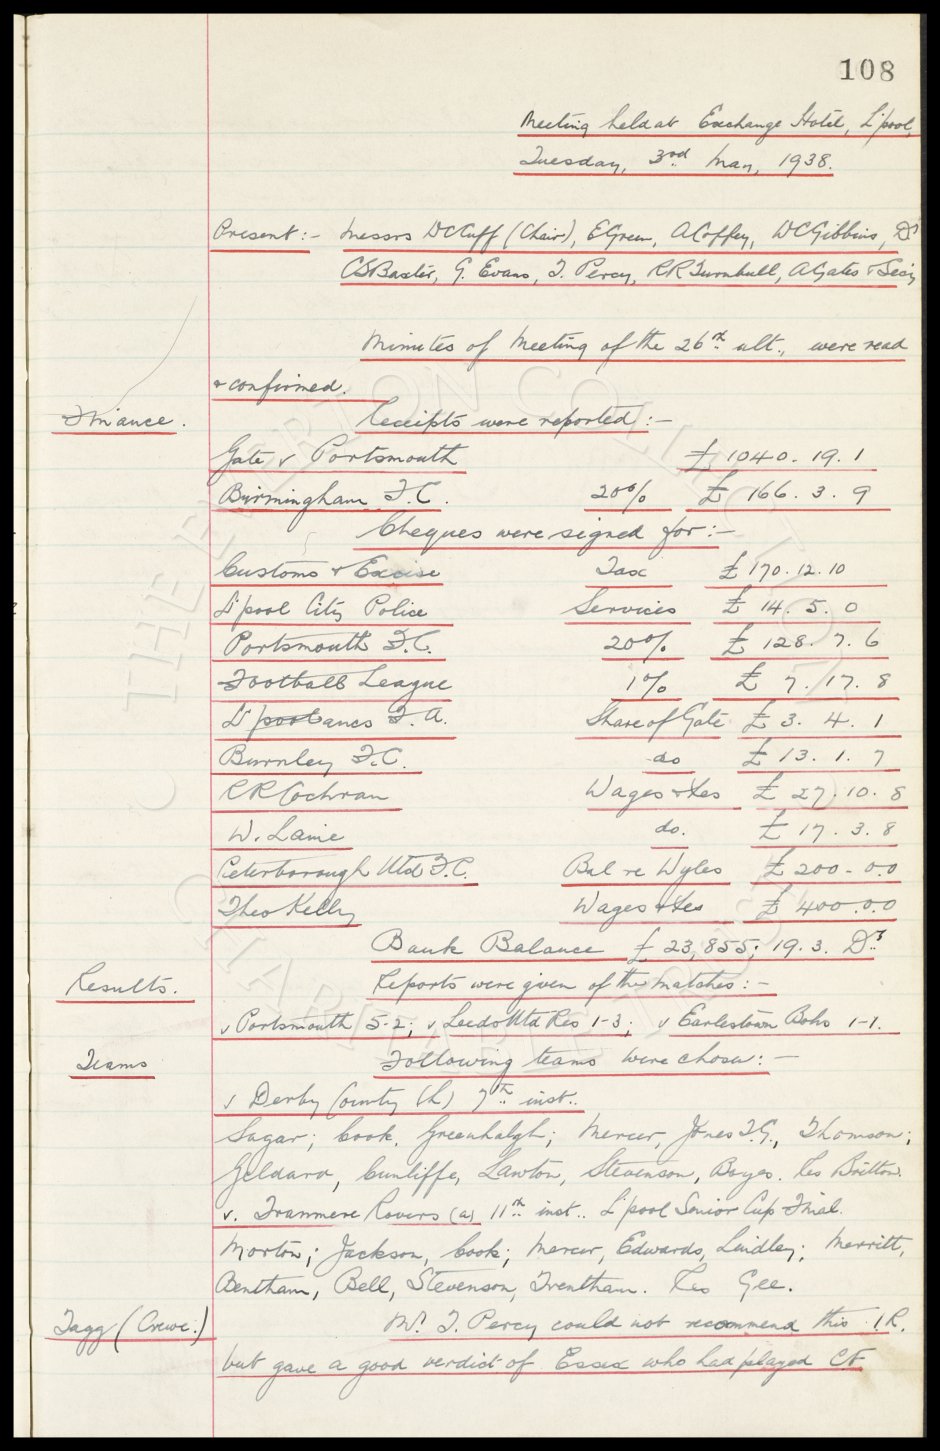 108
Meeting held at Exchange Hotel, L'pool,
Tuesday, 3rd May, 1938.
Present:- Messrs WCCuff (Chair), EGreen, ACoffey, WCGibbins, Dr
CSBaxter, G. Evans, T. Percy, RRTurnbull, AGates & Secy
Minutes of Meeting of the 26th ult., were read
& confirmed.
Finance. Receipts were reported:-
Gate v Portsmouth £1040. 19. 1
Birmingham F.C. 20% £ 166. 3. 9
Cheques were signed for:-
Customs & Excise Tax £170. 12. 10
L'pool City Police Services £ 14. 5. 0
Portsmouth F.C. 20% £ 128. 7. 6
Football League 1% £ 7. 17. 8
L'pool ancs F.A. Share of Gate £ 3. 4. 1
Burnley F.C. do £ 13. 1. 7
RR Cochran Wages &es £ 27. 10. 8
W. Laine do. £ 17. 3. 8
Peterborough Utd F.C. Bal re Wyles £200-0.0
Theo Kelly Wages &es £ 400.0.0
Bank Balance £ 23,855; 19. 3. Dr
Results. Reports were given of the matches:-
v Portsmouth 5-2; v Leeds Utd Res 1-3; v Earlestown Bohs 1-1.
Teams Following teams were chosen:-
v Derby County (h) 7th inst..
Sagar; Cook, Greenhalgh; Mercer, Jones T.G., Thomson;
Geldard, Cunliffe, Lawton, Stevenson, Boyes. Res Britton.
v. Tranmere Rovers (a) 11th inst.. L'pool Senior Cup Final.
Morton; Jackson, Cook; Mercer, Edwards, Lindley; Merritt,
Bentham, Bell, Stevenson, Trentham. Res Gee.
Tagg (Crewe.) Mr. T. Percy could not recommend this I.R.
but gave a good verdict of Essex who had played CF
THE EVERTON COLLECTION
CHARITABLE TRUST